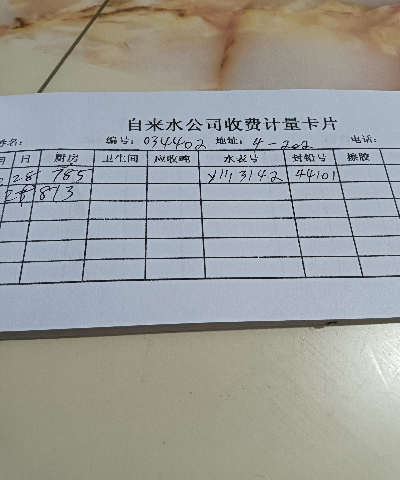 自来水公司收费计量卡片
姓名: 编号: 034402 地址: 4-202 电话:
月 日 厨房 卫生间 应收吨 水表号 封铅号 橡胶
28 785 44101
28 873